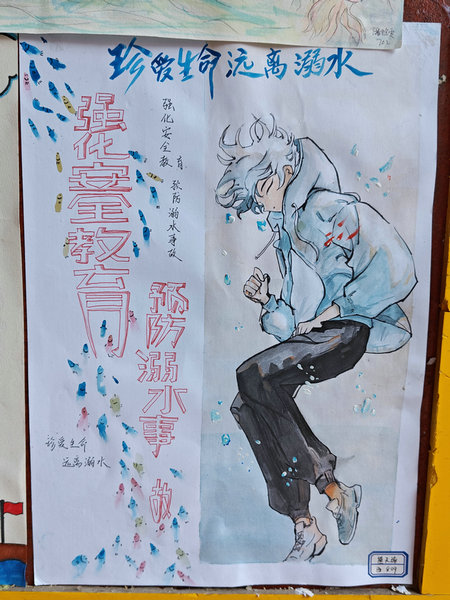 珍爱生命远离溺水
强化安全教育
预防溺水事故
强化安全教育
预防溺水事故
珍爱生命
远离溺水